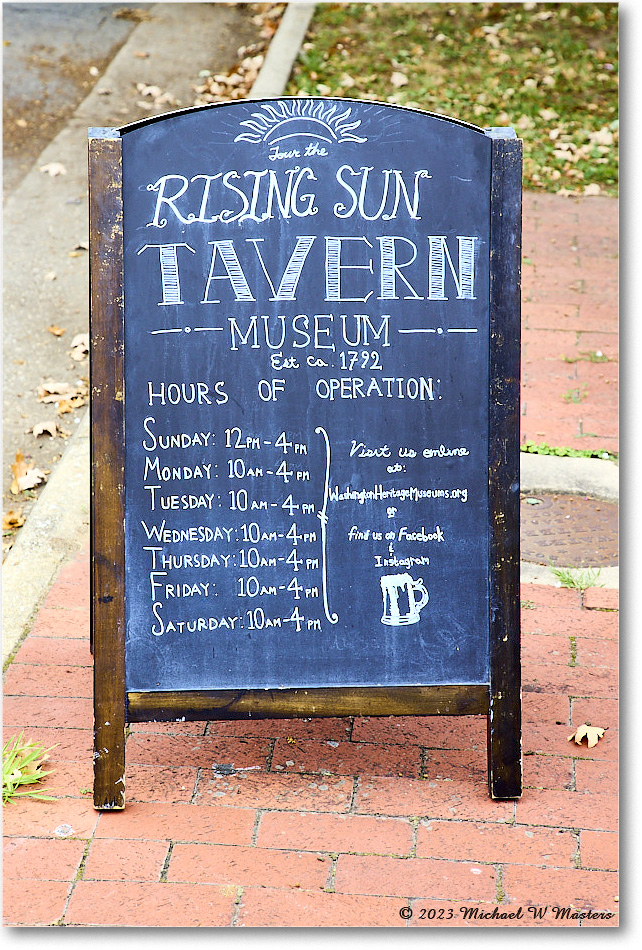 Tour the
RISING SUN
TAVERN
MUSEUM
Est ca. 1792
HOURS OF OPERATION:
SUNDAY: 12PM-4PM
MONDAY: 10AM-4PM
TUESDAY: 10AM-4PM
WEDNESDAY: 10AM-4PM
THURSDAY: 10AM-4PM
FRIDAY: 10AM-4PM
SATURDAY: 10AM-4PM
Visit us online
at:
WashingtonHeritageMuseums.org
or
find us on Facebook
&
Instagram
© 2023 Michael W Masters